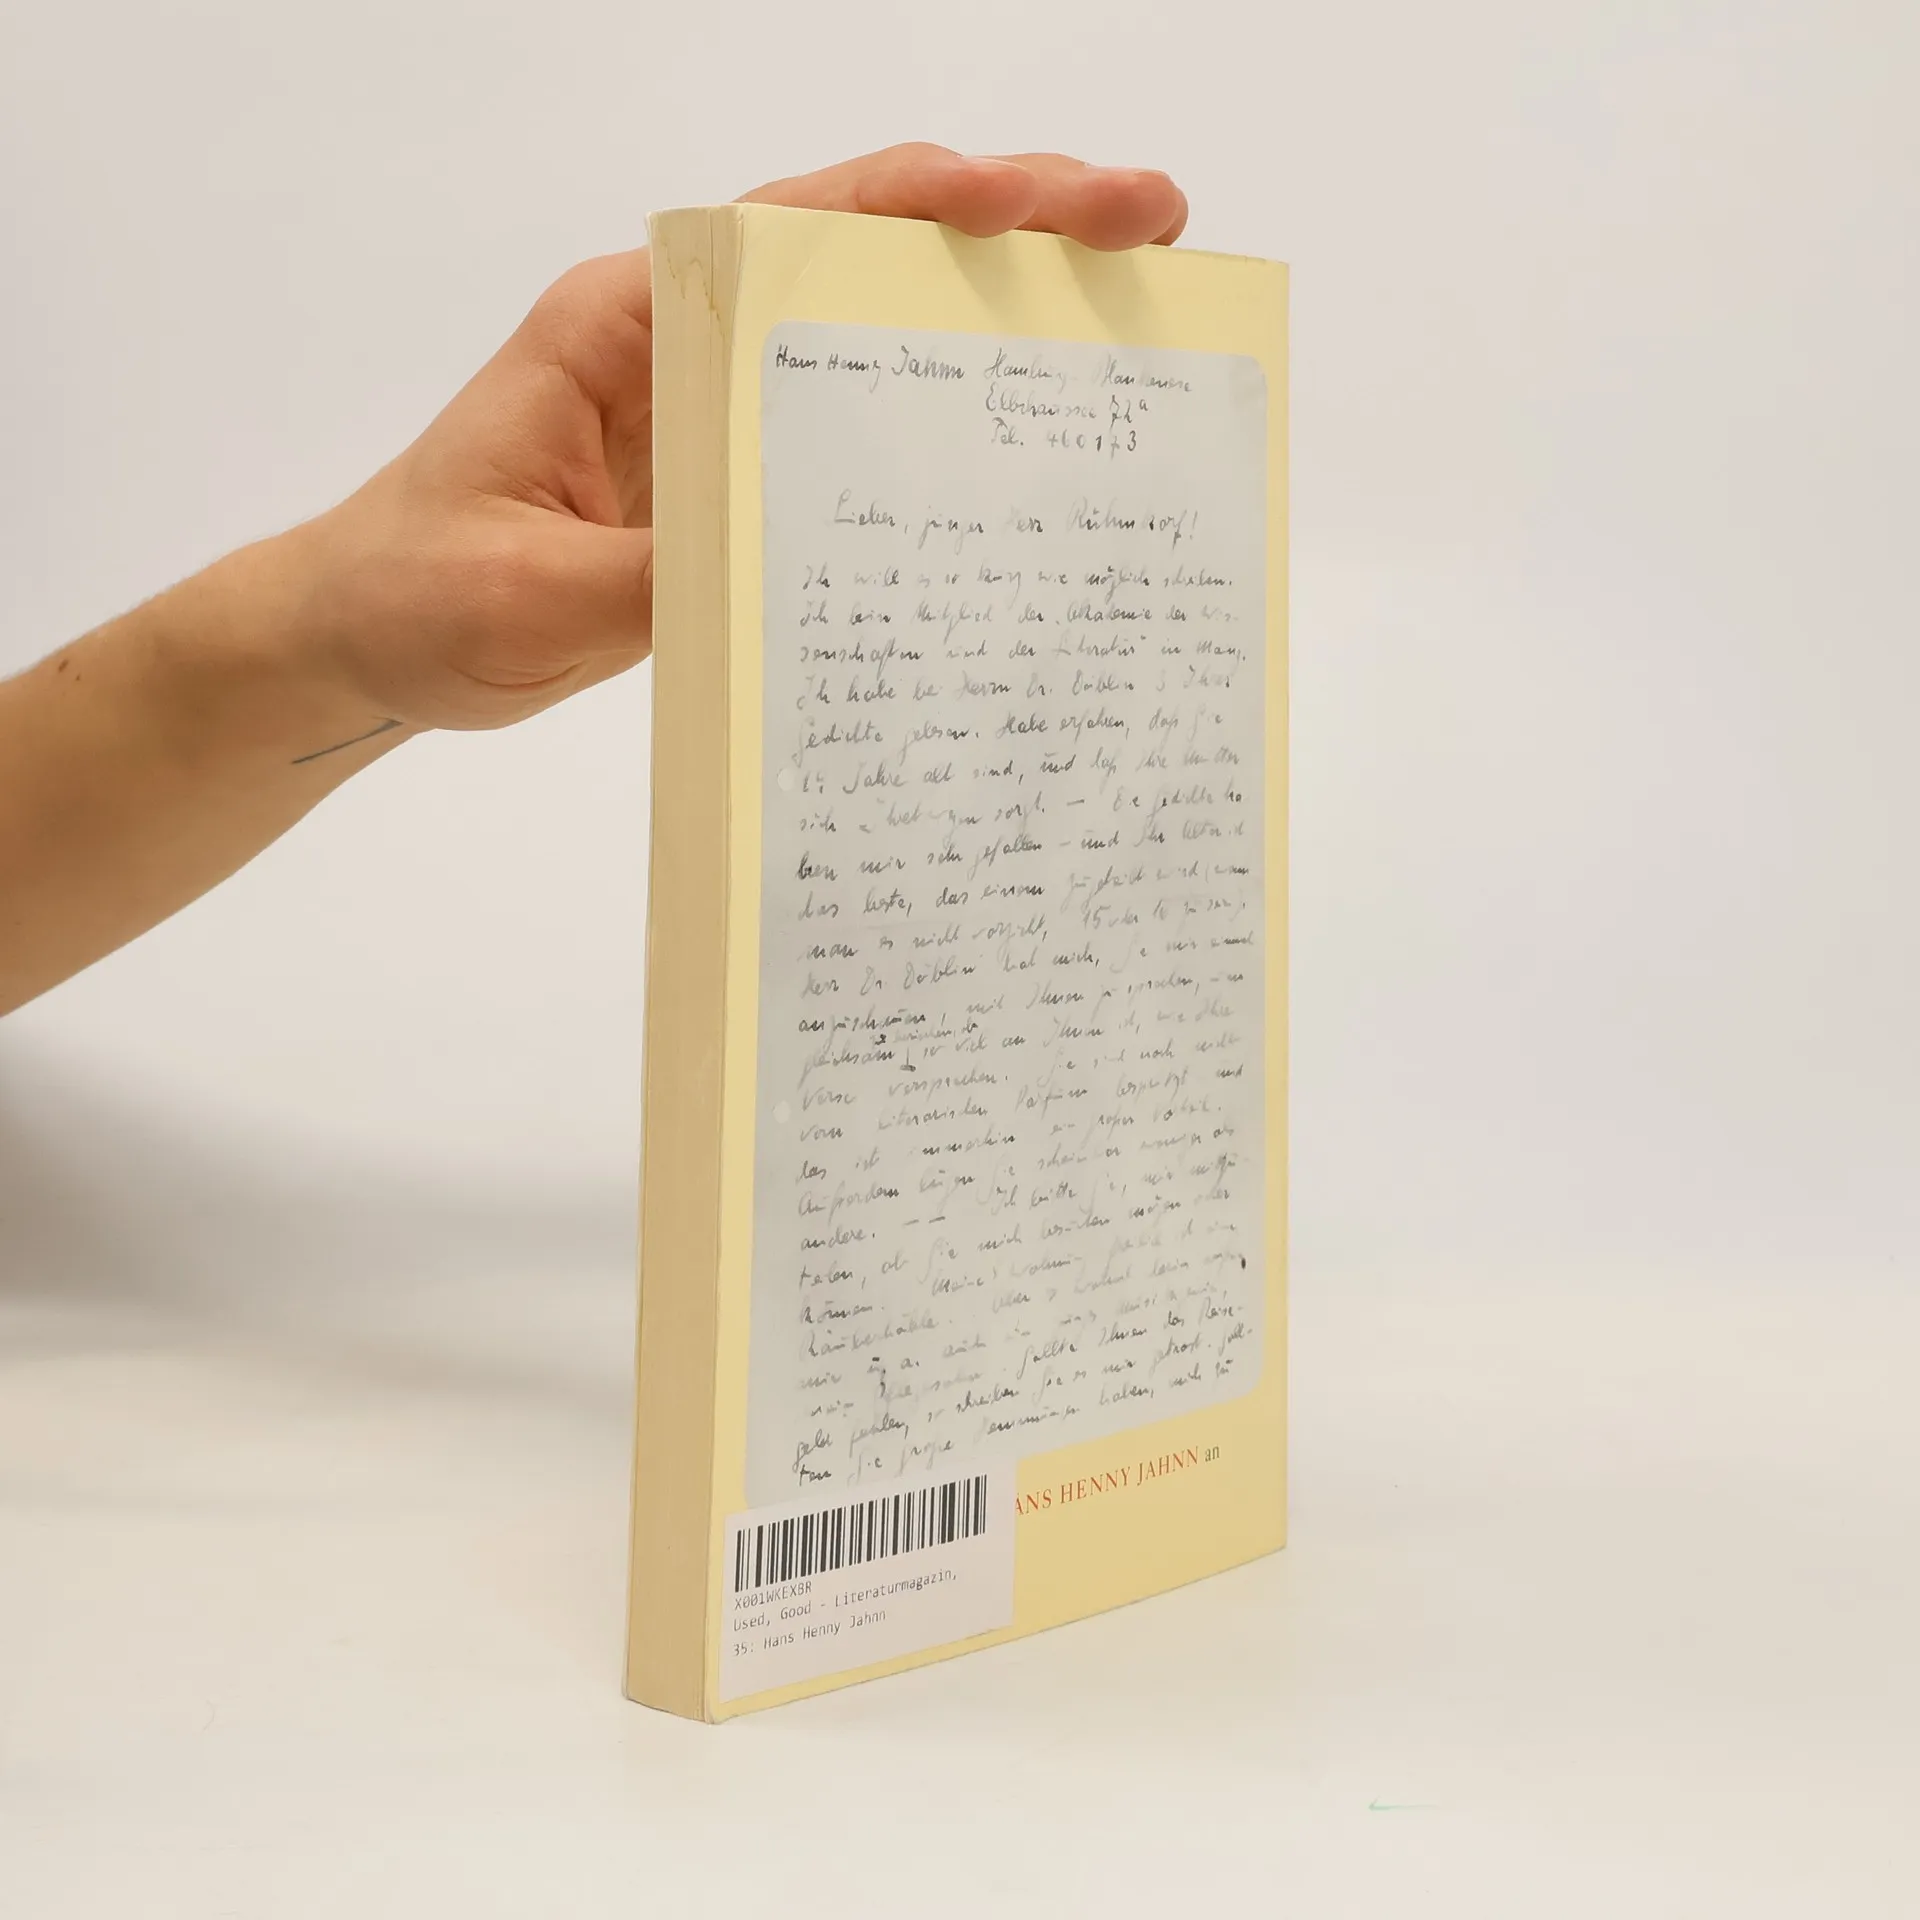 Hans Henny Jahnn Hamburg-Blankenese
Elbchaussee
Tel.
Lieber, junger Herr Rühmkorf!
Ich will es so kurz wie möglich schreiben.
Ich bin Mitglied der "Akademie der Wis-
senschaften und der Literatur" in Mainz.
Ich habe bei Herrn Dr. Döblin 3 Ihrer
Gedichte gelesen. Habe erfahren, daß Sie
Jahre alt sind, und daß Ihre Mutter
sich sorgt. — Die Gedichte ha
ben mir sehr gefallen – und Ihr Alter ist
das beste, das einem zugeteilt wird (wenn
man es nicht vorzieht, 15 oder 16 zu sein).
Herr Dr. Döblin bat mich, Sie mir einmal
anzuschauen, mit Ihnen zu sprechen, um
gleichsam zu erkunden, ob so viel an Ihnen ist, wie Ihre
Verse versprechen. Sie sind noch nicht
vom literarischen Parfüm bespritzt und
das ist immerhin ein großer Vorteil.
Außerdem lügen Sie scheinbar weniger als
andere. — — Ich bitte Sie, mir mitzu-
teilen, ob Sie mich besuchen mögen oder
können. Meine Wohnung ist eine
Räuberhöhle. Aber es wohnt darin
mir u. a. auch
Sollte Ihnen das Reise-
geld fehlen, so schreiben Sie es mir getrost. Soll-
ten Sie große Hemmungen haben, mich zu
HANS HENNY JAHNN an
X001WKEXBR
Used, Good - Literaturmagazin,
35: Hans Henny Jahnn